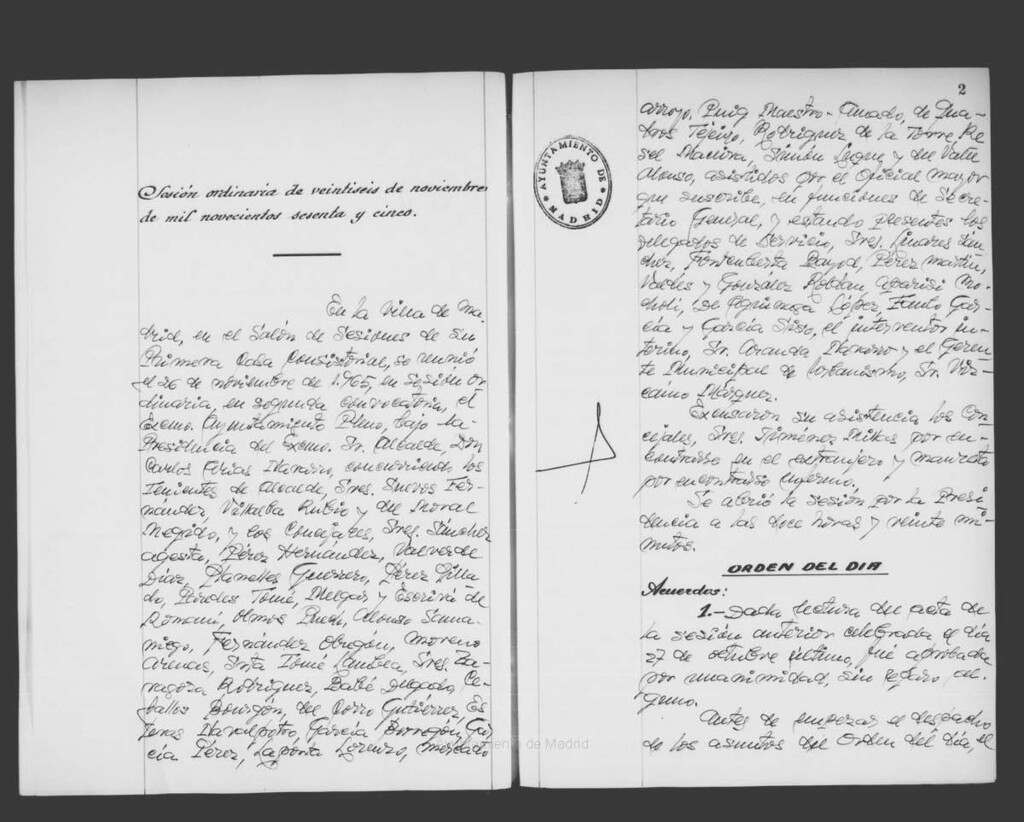 Sesión ordinaria de veintiseis de noviembre
de mil novecientos sesenta y cinco.
En la Villa de Ma-
drid, en el Salón de Sesiones de su
Primera Casa Consistorial, se reunió
el 26 de noviembre de 1.965, en sesión or
dinaria, en segunda convocatoria, el
Excmo. Ayuntamiento Pleno, bajo la
Presidencia del Excmo. Sr. Alcalde, Don
Carlos Arias Navarro, concurriendo los
Tenientes de Alcalde, Sres. Suevos Fer-
nández, Villalba Rubio y del Moral
Megido, y los Concejales, Sres. Sánchez
Agesta, Pérez Hernández, Valverde
Díaz, Planelles Guerrero, Pérez Villa
do, Tomé, Melgar y Escrivá de
Romaní, Olmos, Alonso Sama-
niego, Fernández Obregón, Moreno
Arenas, Srta Tomé, Sres. Za-
ragoza Rodríguez, Babé Delgado, Ce-
ballos Bourgón, del Corro Gutiérrez, Es
García Borregón, Gar
cía Pérez, Laporta Lorenzo, Mercado
2
arroyo, Puig Maestro-Amado, de Gua-
Rodríguez de la Torre, Re
Simón Legue y del Valle
Alonso, asistidos por el Oficial mayor
que suscribe, en funciones de Secre-
tario General, y estando presentes los
Delegados de Servicio, Sres. Linares Sán
chez, Fontcuberta Bayod, Pérez Martín,
Valdés y González Roldán, Aparisi Mo-
choli, López, Fanlo Gar-
cía y García Siso, el interventor in-
terino, Sr. Aranda Navarro y el Geren-
te Municipal de Urbanismo, Sr. Viz-
caíno Márquez.
Excusaron su asistencia los Con-
cejales, Sres. Jiménez Millas por en-
contrarse en el extranjero y
por encontrarse enfermo.
Se abrió la sesión por la Presi
dencia a las doce horas y veinte mi-
nutos.
ORDEN DEL DIA
Acuerdos:
1.- Dada lectura del acta de
la sesión anterior celebrada el día
27 de octubre último, fué aprobada
por unanimidad, sin reparo al-
guno.
Antes de empezar el despacho
de los asuntos del Orden del día, el
AYUNTAMIENTO DE
MADRID
de Madrid